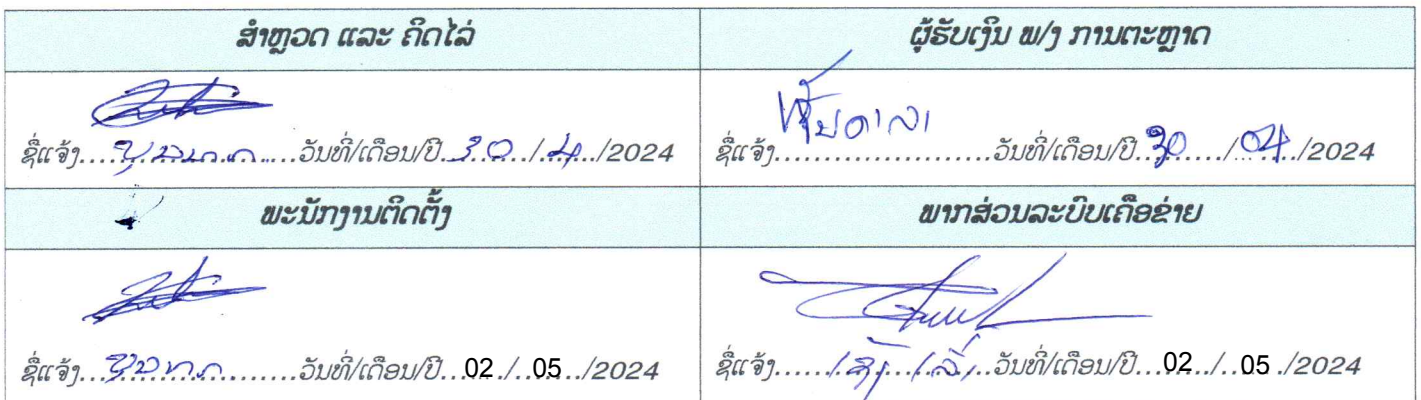 ສຳຫຼວດ ແລະ ຄິດໄລ່
ຜູ້ຮັບເງິນ ພ/ງ ການຕະຫຼາດ
ຊື່ແຈ້ງ..................ວັນທີ່/ເດືອນ/ປີ..30../..4../2024
ຊື່ແຈ້ງ......................ວັນທີ່/ເດືອນ/ປີ..30..../..04../2024
ພະນັກງານຕິດຕັ້ງ
ພາກສ່ວນລະບົບເຄືອຂ່າຍ
ຊື່ແຈ້ງ......................ວັນທີ່/ເດືອນ/ປີ...02../..05../2024
ຊື່ແຈ້ງ......................ວັນທີ່/ເດືອນ/ປີ...02../..05./2024